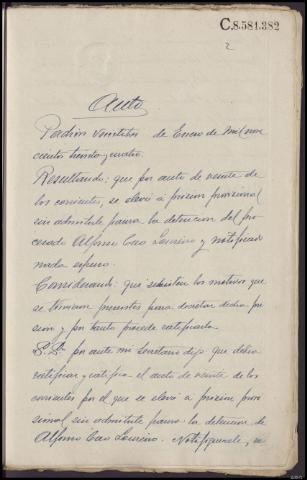 C.8.581.382
2
Auto
Padrón veintitres de Enero de mil nove
cientos treinta y cuatro
Resultando: que por auto de veinte de
los corrientes, se elevó a prisión provisional
sin admitirle fianza la detención del pro
cesado Alfonso Cao Loureiro y notificado
nada expuso.
Considerando: que subsisten los motivos que
se tuvieron presentes para decretar dicha pri
sión y por tanto procede ratificarla
S. Sª por ante mi Secretario dijo que debía
ratificar y ratifica el auto de veinte de los
corrientes por el que se elevó a prisión provi
sional sin admitirle fianza la detención de
Alfonso Cao Loureiro. Notifíquesele,